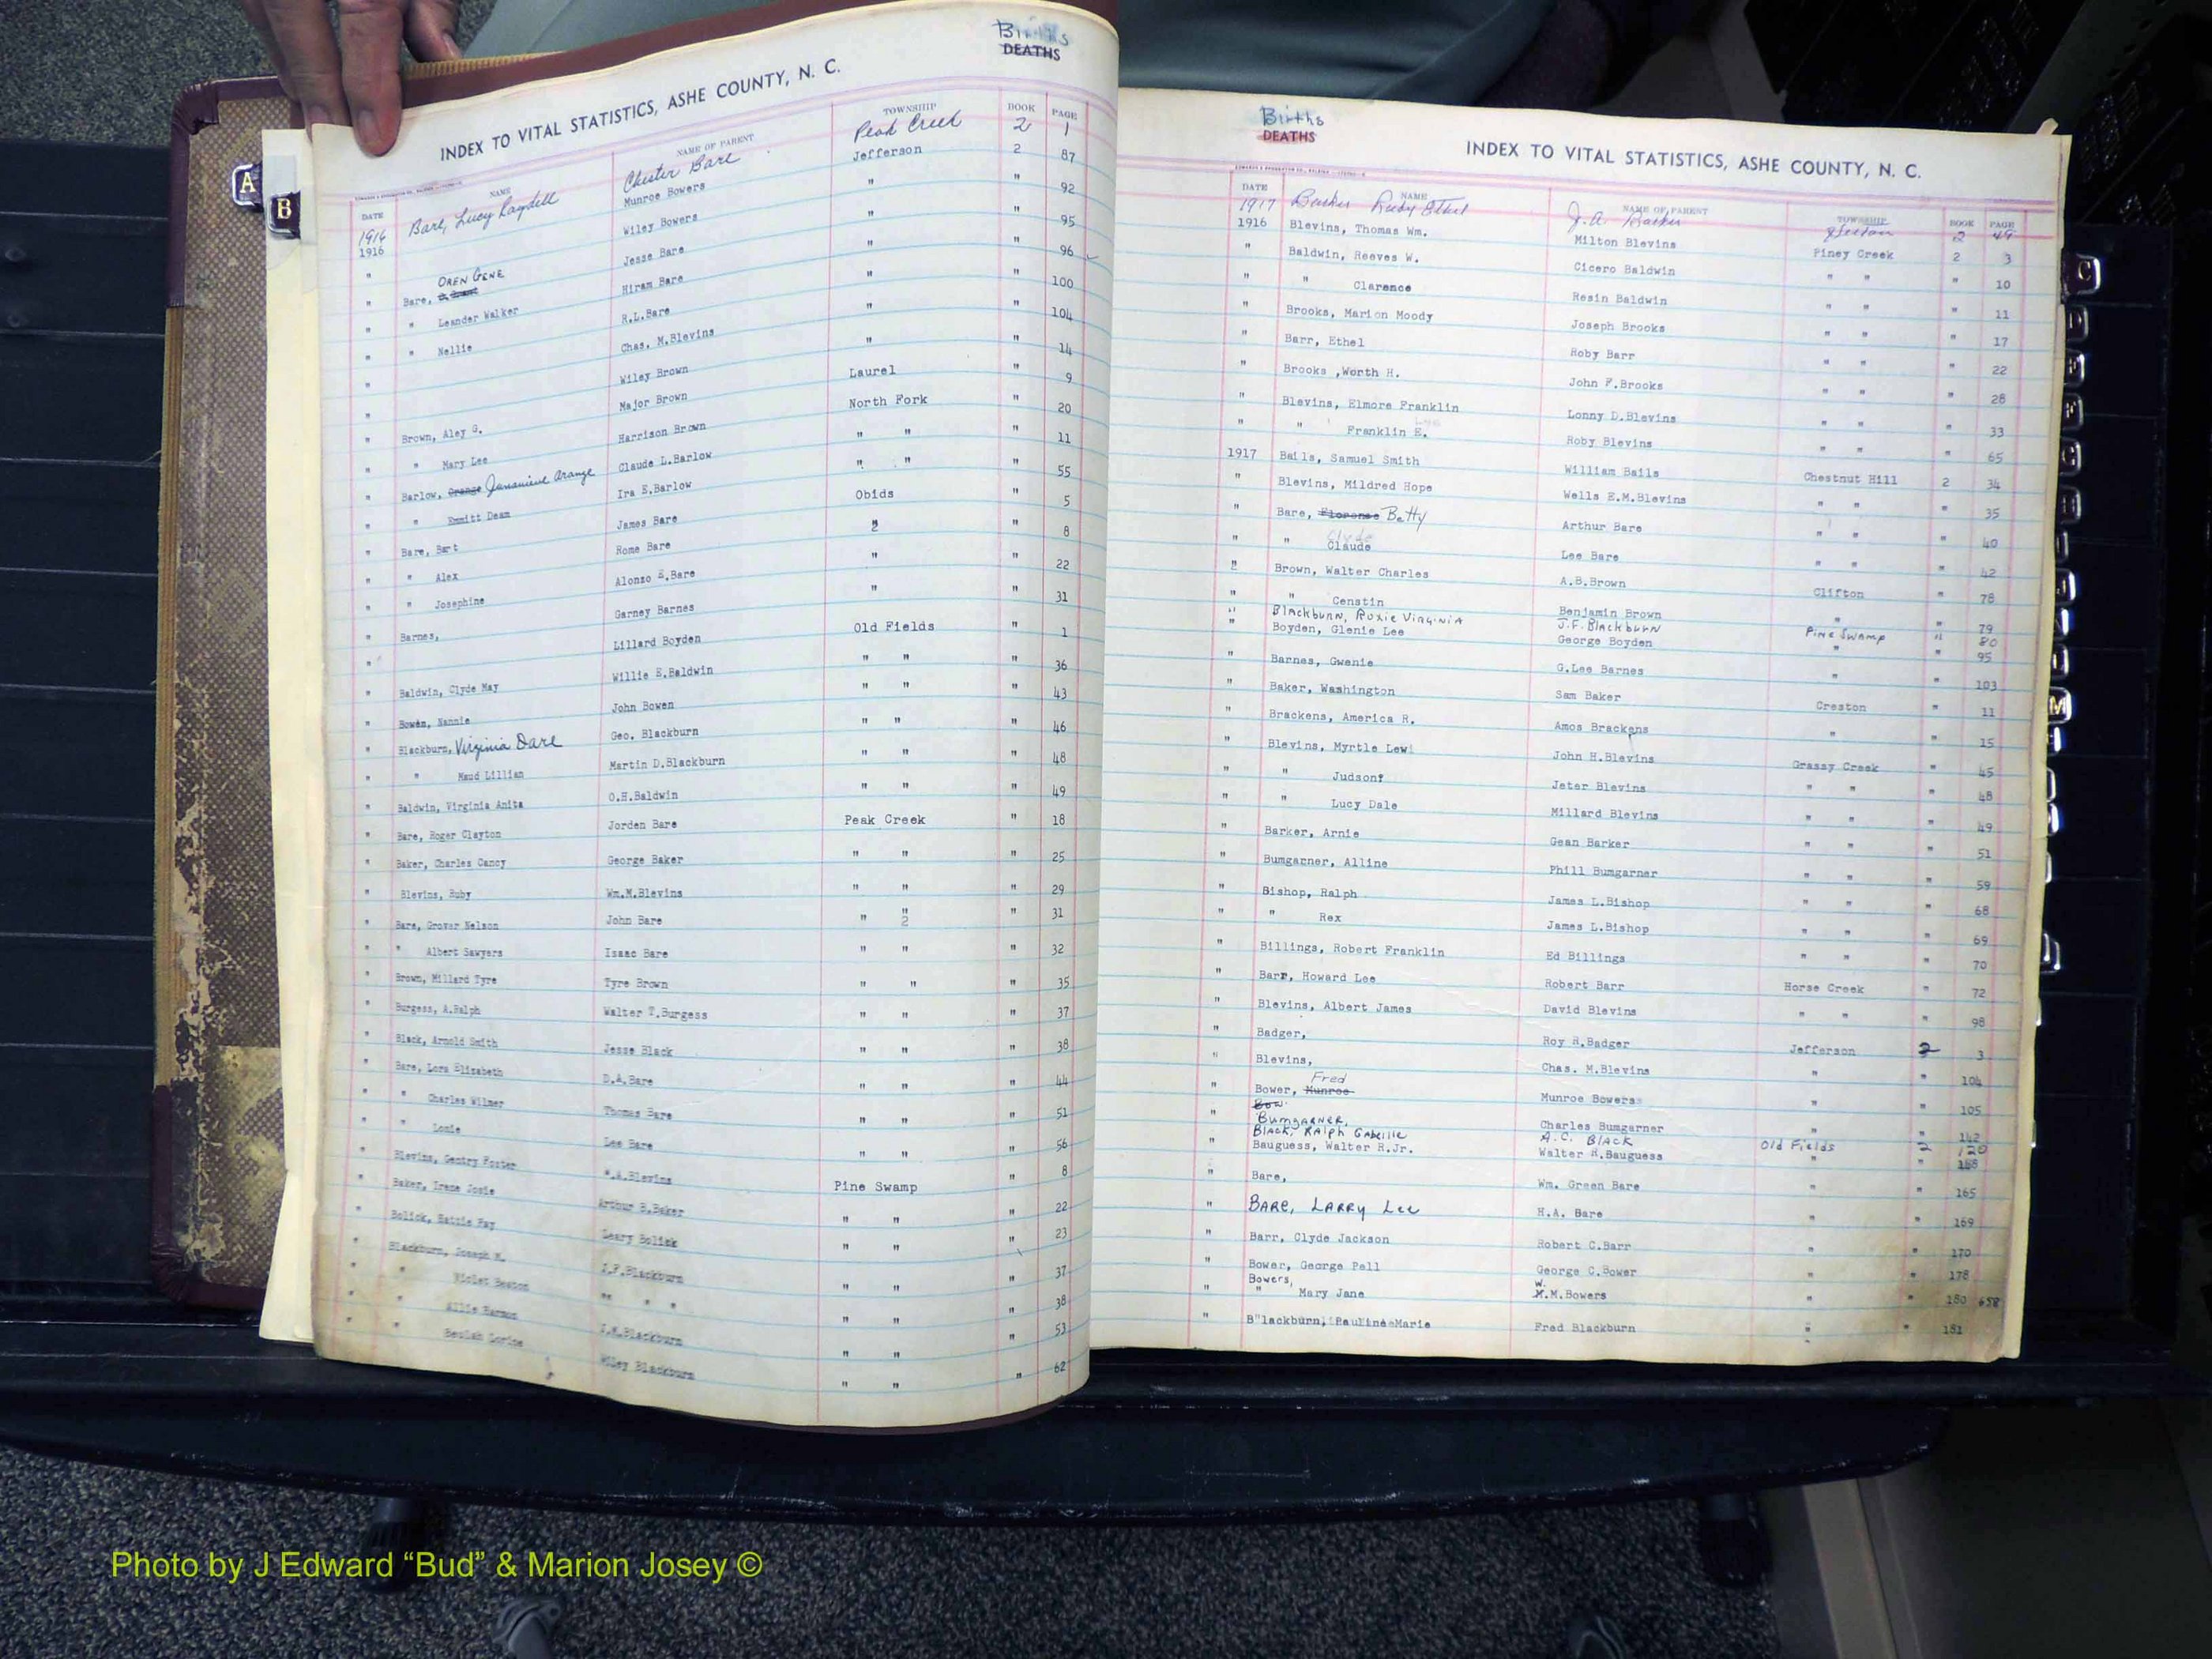 Births
DEATHS
INDEX TO VITAL STATISTICS, ASHE COUNTY, N. C.
DATE NAME NAME OF PARENT TOWNSHIP BOOK PAGE
1916 Bare, Lucy Chester Bare Peak Creek 2 1
1916 Munroe Bowers Jefferson 2 87
" Wiley Bowers " " 92
" Bare, OREN GENE Jesse Bare " " 95
" " Leander Walker Hiram Bare " " 96
" " Nellie R.L.Bare " " 100
" Chas. M.Blevins " " 104
" Wiley Brown " " 14
" Brown, Aley G. Major Brown Laurel " 9
" " Mary Lee Harrison Brown North Fork " 20
" Barlow, Orange Claude L.Barlow " " " 11
" " Emmitt Dean Ira E.Barlow " " " 55
" Bare, Bart James Bare Obids " 5
" " Alex Rome Bare " 2 " 8
" " Josephine Alonzo E.Bare " " 22
" Barnes, Garney Barnes " " 31
" Lillard Boyden Old Fields " 1
" Baldwin, Clyde May Willie E.Baldwin " " " 36
" Bowen, Nannie John Bowen " " " 43
" Blackburn, Virginia Dare Geo. Blackburn " " " 46
" " Maud Lillian Martin D.Blackburn " " " 48
" Baldwin, Virginia Anita O.H.Baldwin " " " 49
" Bare, Roger Clayton Jorden Bare Peak Creek " 18
" Baker, Charles Cancy George Baker " " " 25
" Blevins, Ruby Wm.M.Blevins " " " 29
" Bare, Grover Nelson John Bare " " 2 " 31
" " Albert Sawyers Isaac Bare " " " 32
" Brown, Millard Tyre Tyre Brown " " " 35
" Burgess, A.Ralph Walter T.Burgess " " " 37
" Black, Arnold Smith Jesse Black " " " 38
" Bare, Lora Elizabeth D.A.Bare " " " 44
" " Charles Wilmer Thomas Bare " " " 51
" " Lonie Lee Bare " " " 56
" Blevins, Gentry Foster .A.Blevins Pine Swamp " 8
" Baker, Irene Josie Arthur B.Baker " " " 22
" Bolick, Hattie Fay Leary Bolick " " " 23
" Blackburn, Joseph M. J.F.Blackburn " " " 37
" " Violet Beaton " " " " " " 38
" " Allie Harmon J.M.Blackburn " " " 53
" " Beulah Lorine Wiley Blackburn " " " 62
Births
DEATHS
INDEX TO VITAL STATISTICS, ASHE COUNTY, N. C.
DATE NAME NAME OF PARENT TOWNSHIP BOOK PAGE
1917 Barker Ruby Ethel J.A. Barker 2 49
1916 Blevins, Thomas Wm. Milton Blevins Piney Creek 2 3
" Baldwin, Reeves W. Cicero Baldwin " " " 10
" " Clarence Resin Baldwin " " " 11
" Brooks, Marion Moody Joseph Brooks " " " 17
" Barr, Ethel Roby Barr " " " 22
" Brooks ,Worth H. John F.Brooks " " " 28
" Blevins, Elmore Franklin Lonny D.Blevins " " " 33
" " Franklin E. Roby Blevins " " " 65
1917 Bails, Samuel Smith William Bails Chestnut Hill 2 34
" Blevins, Mildred Hope Wells E.M.Blevins " " " 35
" Bare, Florence Betty Arthur Bare " " " 40
" " Clyde Claude Lee Bare " " " 42
" Brown, Walter Charles A.B.Brown Clifton " 78
" " Censtin Benjamin Brown " " 79
" Blackburn, Roxie Virginia J.F.Blackburn Pine Swamp " 80
" Boyden, Glenie Lee George Boyden " " 95
" Barnes, Gwenie G.Lee Barnes " " 103
" Baker, Washington Sam Baker Creston " 11
" Brackens, America R. Amos Brackens " " 15
" Blevins, Myrtle Lewi John H.Blevins Grassy Creek " 45
" " Judson? Jeter Blevins " " " 48
" " Lucy Dale Millard Blevins " " " 49
" Barker, Arnie Gean Barker " " " 51
" Bumgarner, Alline Phill Bumgarner " " " 59
" Bishop, Ralph James L.Bishop " " " 68
" " Rex James L.Bishop " " " 69
" Billings, Robert Franklin Ed Billings " " " 70
" Barr, Howard Lee Robert Barr Horse Creek " 72
" Blevins, Albert James David Blevins " " " 98
" Badger, Roy R.Badger Jefferson 2 3
" Blevins, Chas. M.Blevins " " 104
" Bower, Munroe Fred Munroe Bowers " " 105
" Bow Bumgarner, Charles Bumgarner " " 112
Black, Ralph A.C. Black Old Fields 2 120
" Bauguess, Walter R.Jr. Walter R.Bauguess " " 158
" Bare, Wm. Green Bare " " 165
" BARE, LARRY Lee H.A. Bare " " 169
" Barr, Clyde Jackson Robert C.Barr " " 170
" Bower, George Pell George C.Bower " " 178
" Bowers, " Mary Jane W. M.M.Bowers " " 180 658
" B"lackburn, Pauline Marie Fred Blackburn " " 181
A
B
C
D
E
F
M
Photo by J Edward “Bud” & Marion Josey ©